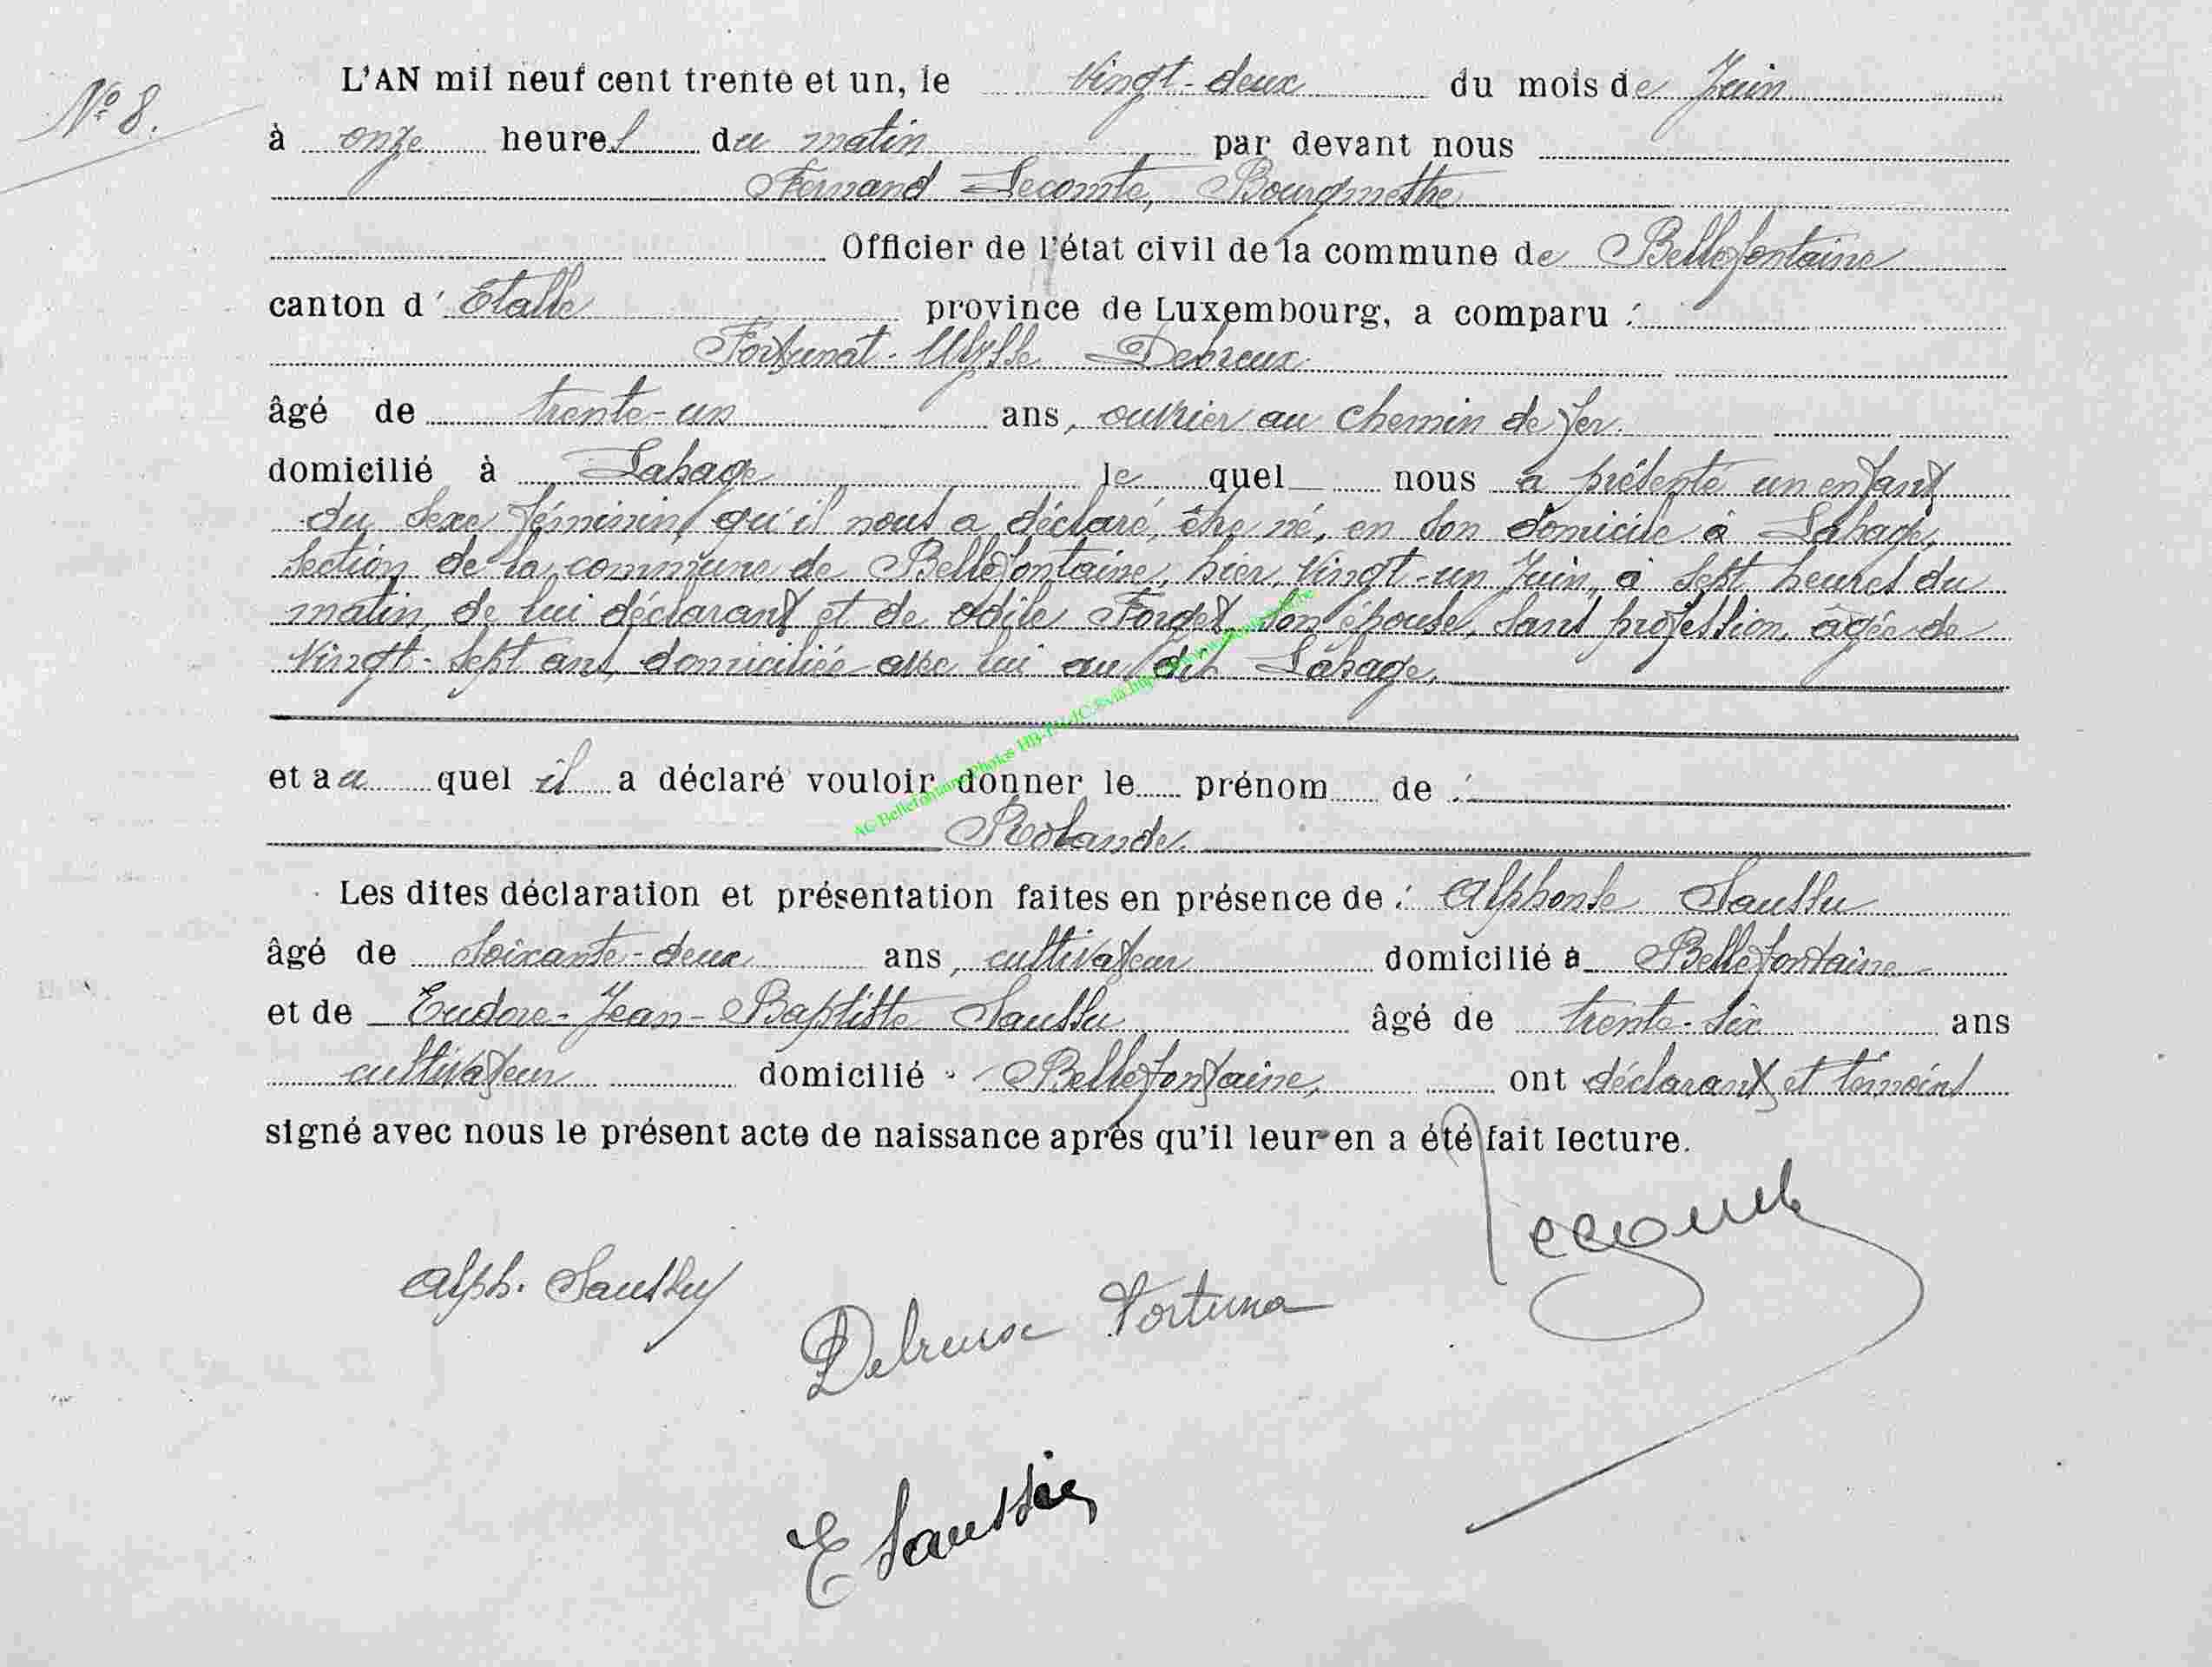 N° 8.
L'AN mil neuf cent trente et un, le vingt-deux du mois de Juin
à onze heures du matin par devant nous
Fernand Lecomte, Bourgmestre
Officier de l'état civil de la commune de Bellefontaine
canton d'Etalle province de Luxembourg, a comparu :
Fortunat-Ulysse Debreux
âgé de trente-un ans, ouvrier au chemin de fer
domicilié à Lahage lequel nous a présenté un enfant
du sexe féminin, qu'il nous a déclaré, être né, en son domicile à Lahage,
section de la commune de Bellefontaine, hier, vingt-un Juin, à sept heures du
matin, de lui déclarant et de Odile Forget, son épouse, sans profession, âgée de
vingt-sept ans, domiciliée avec lui au dit Lahage,
et au quel il a déclaré vouloir donner le prénom de :
Rolande.
Les dites déclaration et présentation faites en présence de : Alphonse Saussu
âgé de soixante-deux ans, cultivateur domicilié à Bellefontaine
et de Eudore-Jean-Baptiste Saussu âgé de trente-six ans
cultivateur domicilié Bellefontaine, ont déclarant et témoins
signé avec nous le présent acte de naissance après qu'il leur en a été fait lecture.
Lecomte
Alph. Saussu
Debreux Fortuna
E Saussu
AC Bellefontaine Photos